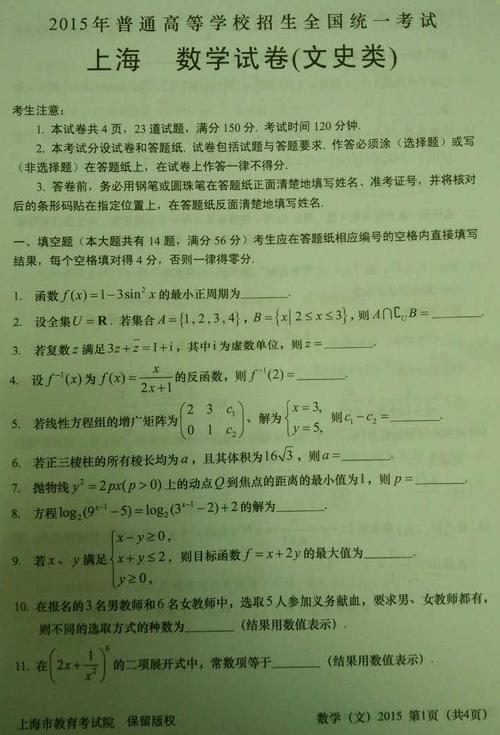 2015年普通高等学校招生全国统一考试
上海 数学试卷(文史类)
考生注意：
1. 本试卷共4页，23道试题，满分150分. 考试时间120分钟.
2. 本考试分设试卷和答题纸. 试卷包括试题与答题要求. 作答必须涂（选择题）或写
（非选择题）在答题纸上，在试卷上作答一律不得分.
3. 答卷前，务必用钢笔或圆珠笔在答题纸正面清楚地填写姓名、准考证号，并将核对
后的条形码贴在指定位置上，在答题纸反面清楚地填写姓名.
一、填空题（本大题共有14题，满分56分）考生应在答题纸相应编号的空格内直接填写
结果，每个空格填对得4分，否则一律得零分.
1. 函数 f(x)=1-3sin²x 的最小正周期为______.
2. 设全集U=R. 若集合A={1,2,3,4}, B={x|2≤x≤3}, 则A∩∁_U B=______.
3. 若复数z满足3z+z̄=1+i, 其中i为虚数单位, 则z=______.
4. 设f⁻¹(x)为f(x)=x/(2x+1)的反函数, 则f⁻¹(2)=______.
5. 若线性方程组的增广矩阵为(2 3 c₁; 0 1 c₂)、解为{x=3, y=5, 则c₁-c₂=______.
6. 若正三棱柱的所有棱长均为a, 且其体积为16√3, 则a=______.
7. 抛物线y²=2px(p>0)上的动点Q到焦点的距离的最小值为1, 则p=______.
8. 方程log₂(9ˣ⁻¹-5)=log₂(3ˣ⁻¹-2)+2的解为______.
9. 若x、y满足{x-y≥0, x+y≤2, y≥0, 则目标函数f=x+2y的最大值为______.
10. 在报名的3名男教师和6名女教师中，选取5人参加义务献血，要求男、女教师都有，
则不同的选取方式的种数为______（结果用数值表示）.
11. 在(2x+1/x²)⁶的二项展开式中，常数项等于______（结果用数值表示）.
上海市教育考试院 保留版权 数学（文）2015 第1页（共4页）